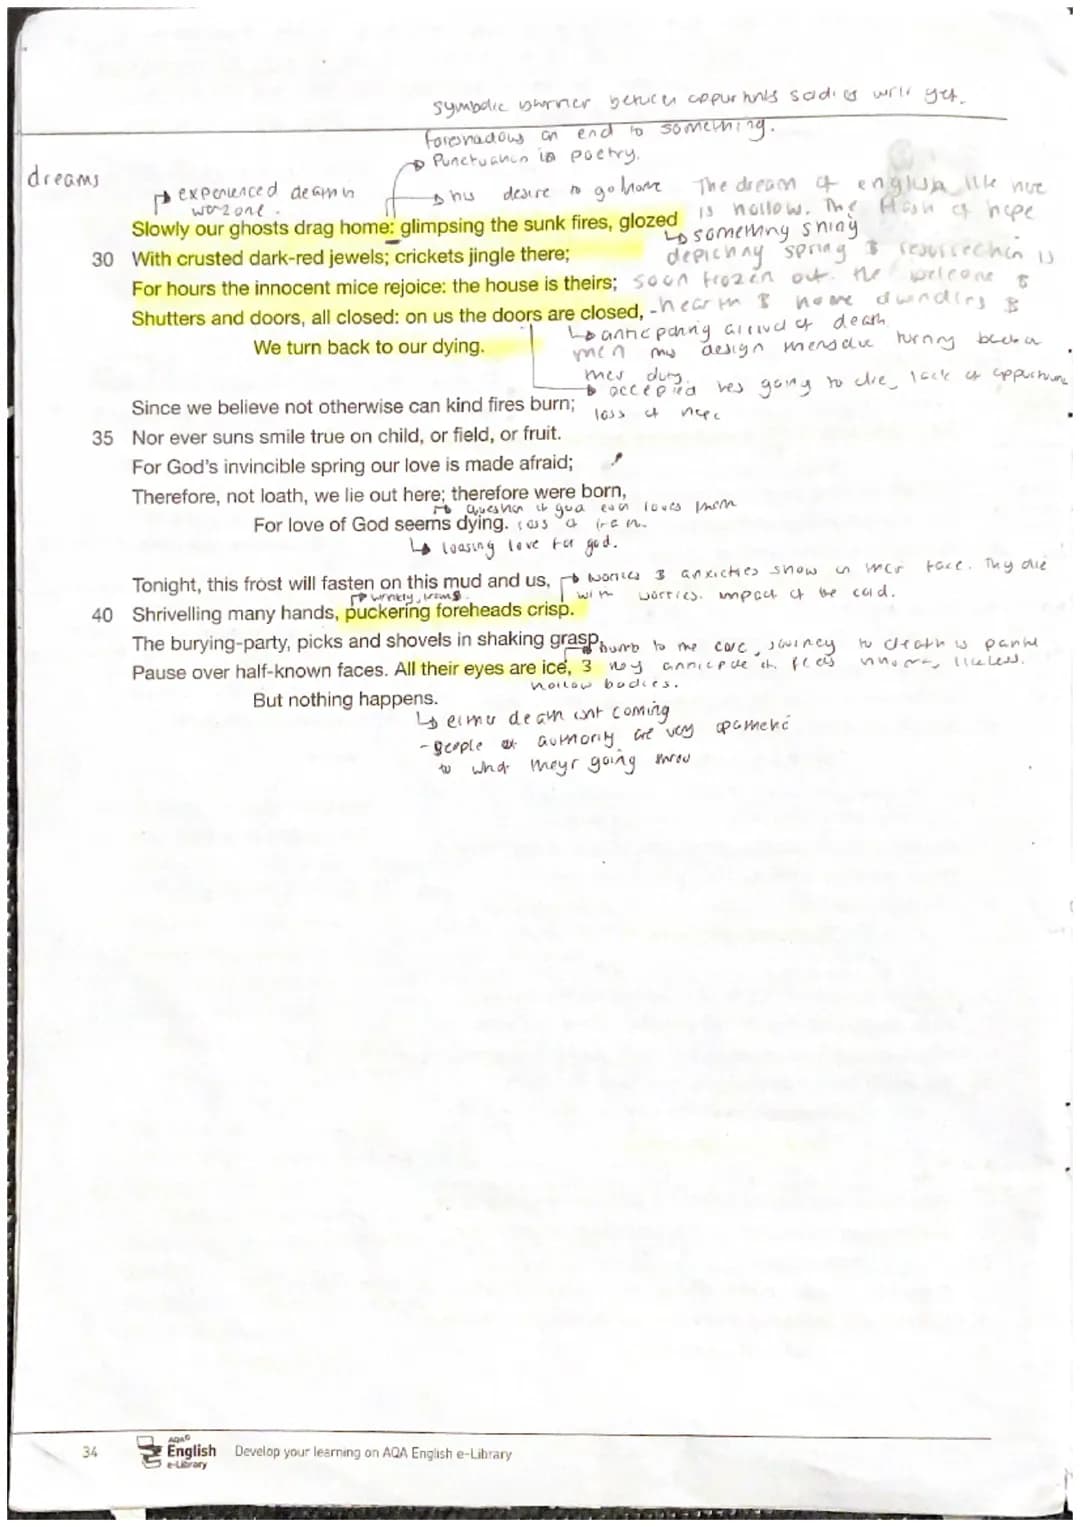 symbolic barrier between soldiers will get.
foreshadows an end to something.
Punctuation in poetry.
dreams
experienced death in
warzone.
his desire to go home
The dream of english life here
is hollow. The flash of hope
something shiny
depicting spring & resurrection is
soon frozen out. the welcome of
hearth & home dwindles &
Slowly our ghosts drag home: glimpsing the sunk fires, glozed
30 With crusted dark-red jewels; crickets jingle there;
For hours the innocent mice rejoice: the house is theirs;
Shutters and doors, all closed: on us the doors are closed,
We turn back to our dying.
anticipating arrival of death
men turning back
duty.
accepted hes going to die, lack of
loss of hope
Since we believe not otherwise can kind fires burn;
35 Nor ever suns smile true on child, or field, or fruit.
For God's invincible spring our love is made afraid;
Therefore, not loath, we lie out here; therefore were born,
question if god even loves them
For love of God seems dying. loss of
loosing love for god.
Tonight, this frost will fasten on this mud and us,
worries & anxieties show on their face. They die
with worries. impact of the cold.
wrinkly,
40 Shrivelling many hands, puckering foreheads crisp.
The burying-party, picks and shovels in shaking grasp,
numb to the core, journey to death is painful
Pause over half-known faces. All their eyes are ice,
they anticipate it. lifeless.
hollow bodies.
But nothing happens.
either death isnt coming
- people of authority are very apathetic
to what theyr going throu
34
AQA
English
e-Library
Develop your learning on AQA English e-Library